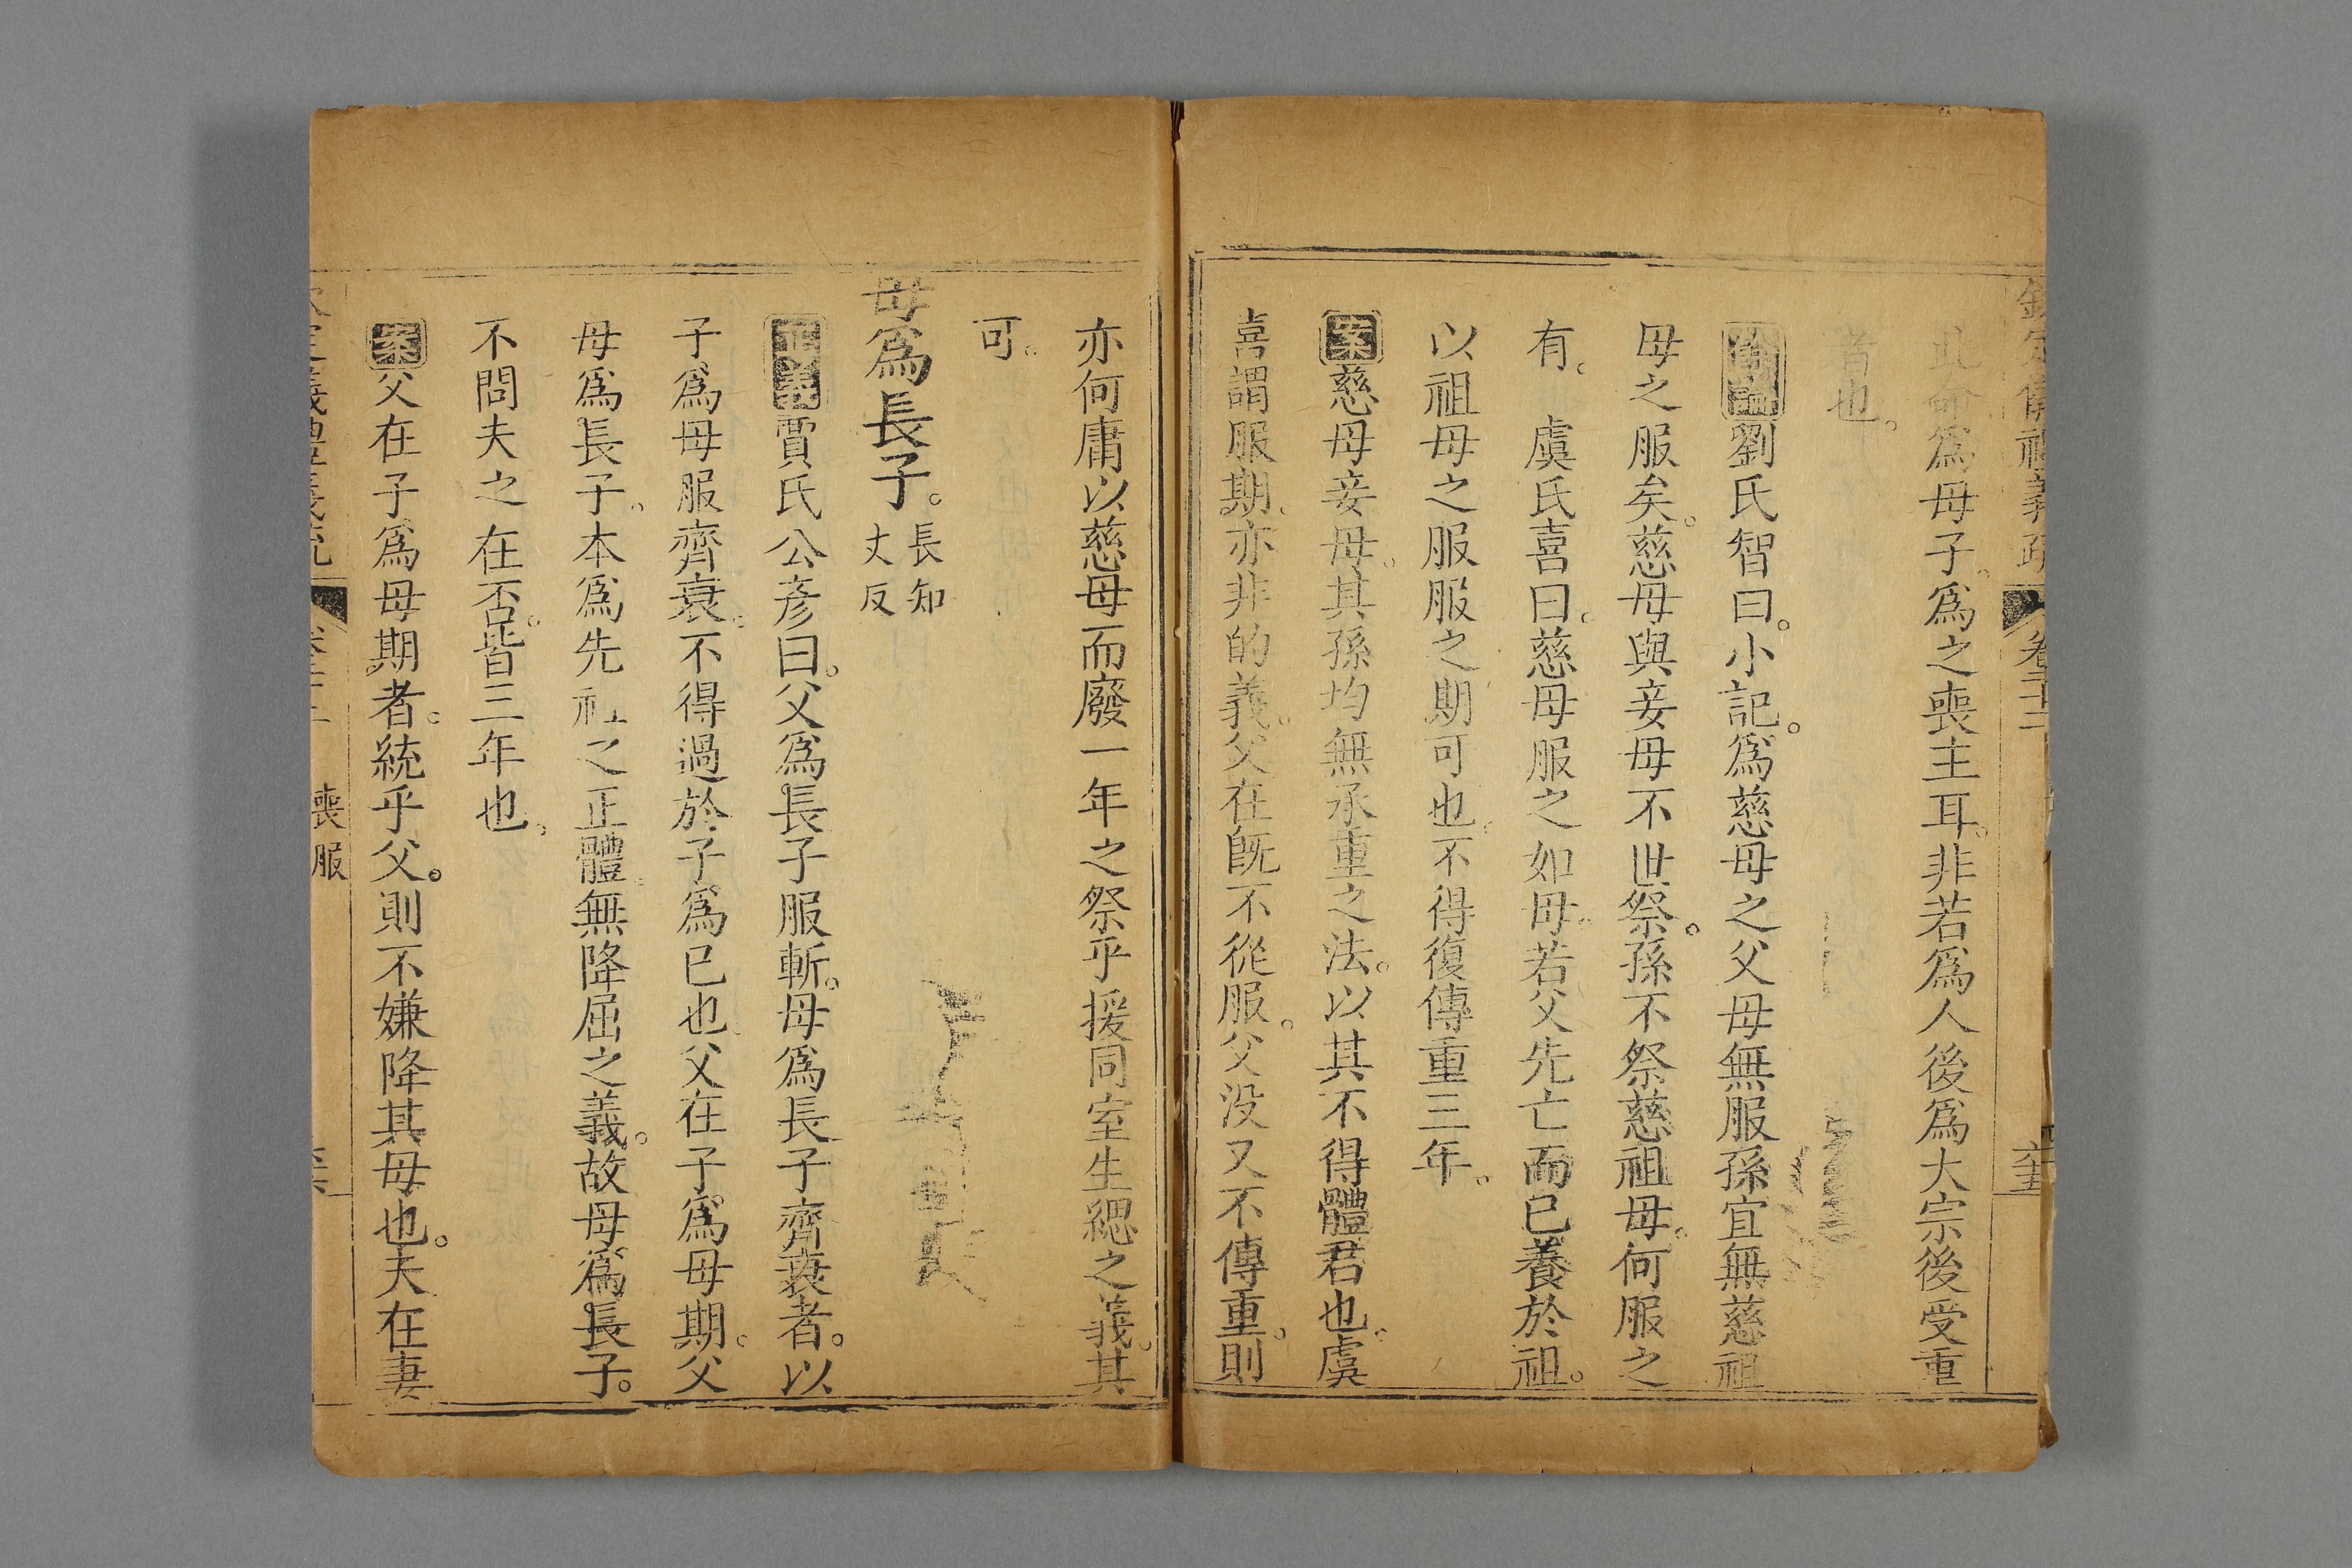 欽定儀禮義疏 卷二十二
其命爲母子。爲之喪主耳。非若爲人後爲大宗後受重
者也。
餘論劉氏智曰。小記。爲慈母之父母無服孫宜無慈祖
母之服矣。慈母與妾母不世祭。孫不祭慈祖母。何服之
有。 虞氏喜曰。慈母服之如母。若父先亡而已養於祖。
以祖母之服服之期可也。不得復傳重三年。
案慈母妾母。其孫均無承重之法。以其不得體君也。虞
喜謂服期。亦非的義。父在旣不從服。父没又不傳重。則
亦何庸以慈母而廢一年之祭乎援同室生緦之義。其
可。
母爲長子。長知丈反
正義賈氏公彦曰。父爲長子服斬。母爲長子齊衰者。以
子爲母服齊衰。不得過於子爲已也。父在子爲母期。父
母爲長子。本爲先祖之正體。無降屈之義。故母爲長子。
不問夫之在否。皆三年也。
案父在子爲母期者。統乎父。則不嫌降其母也。夫在妻
喪服